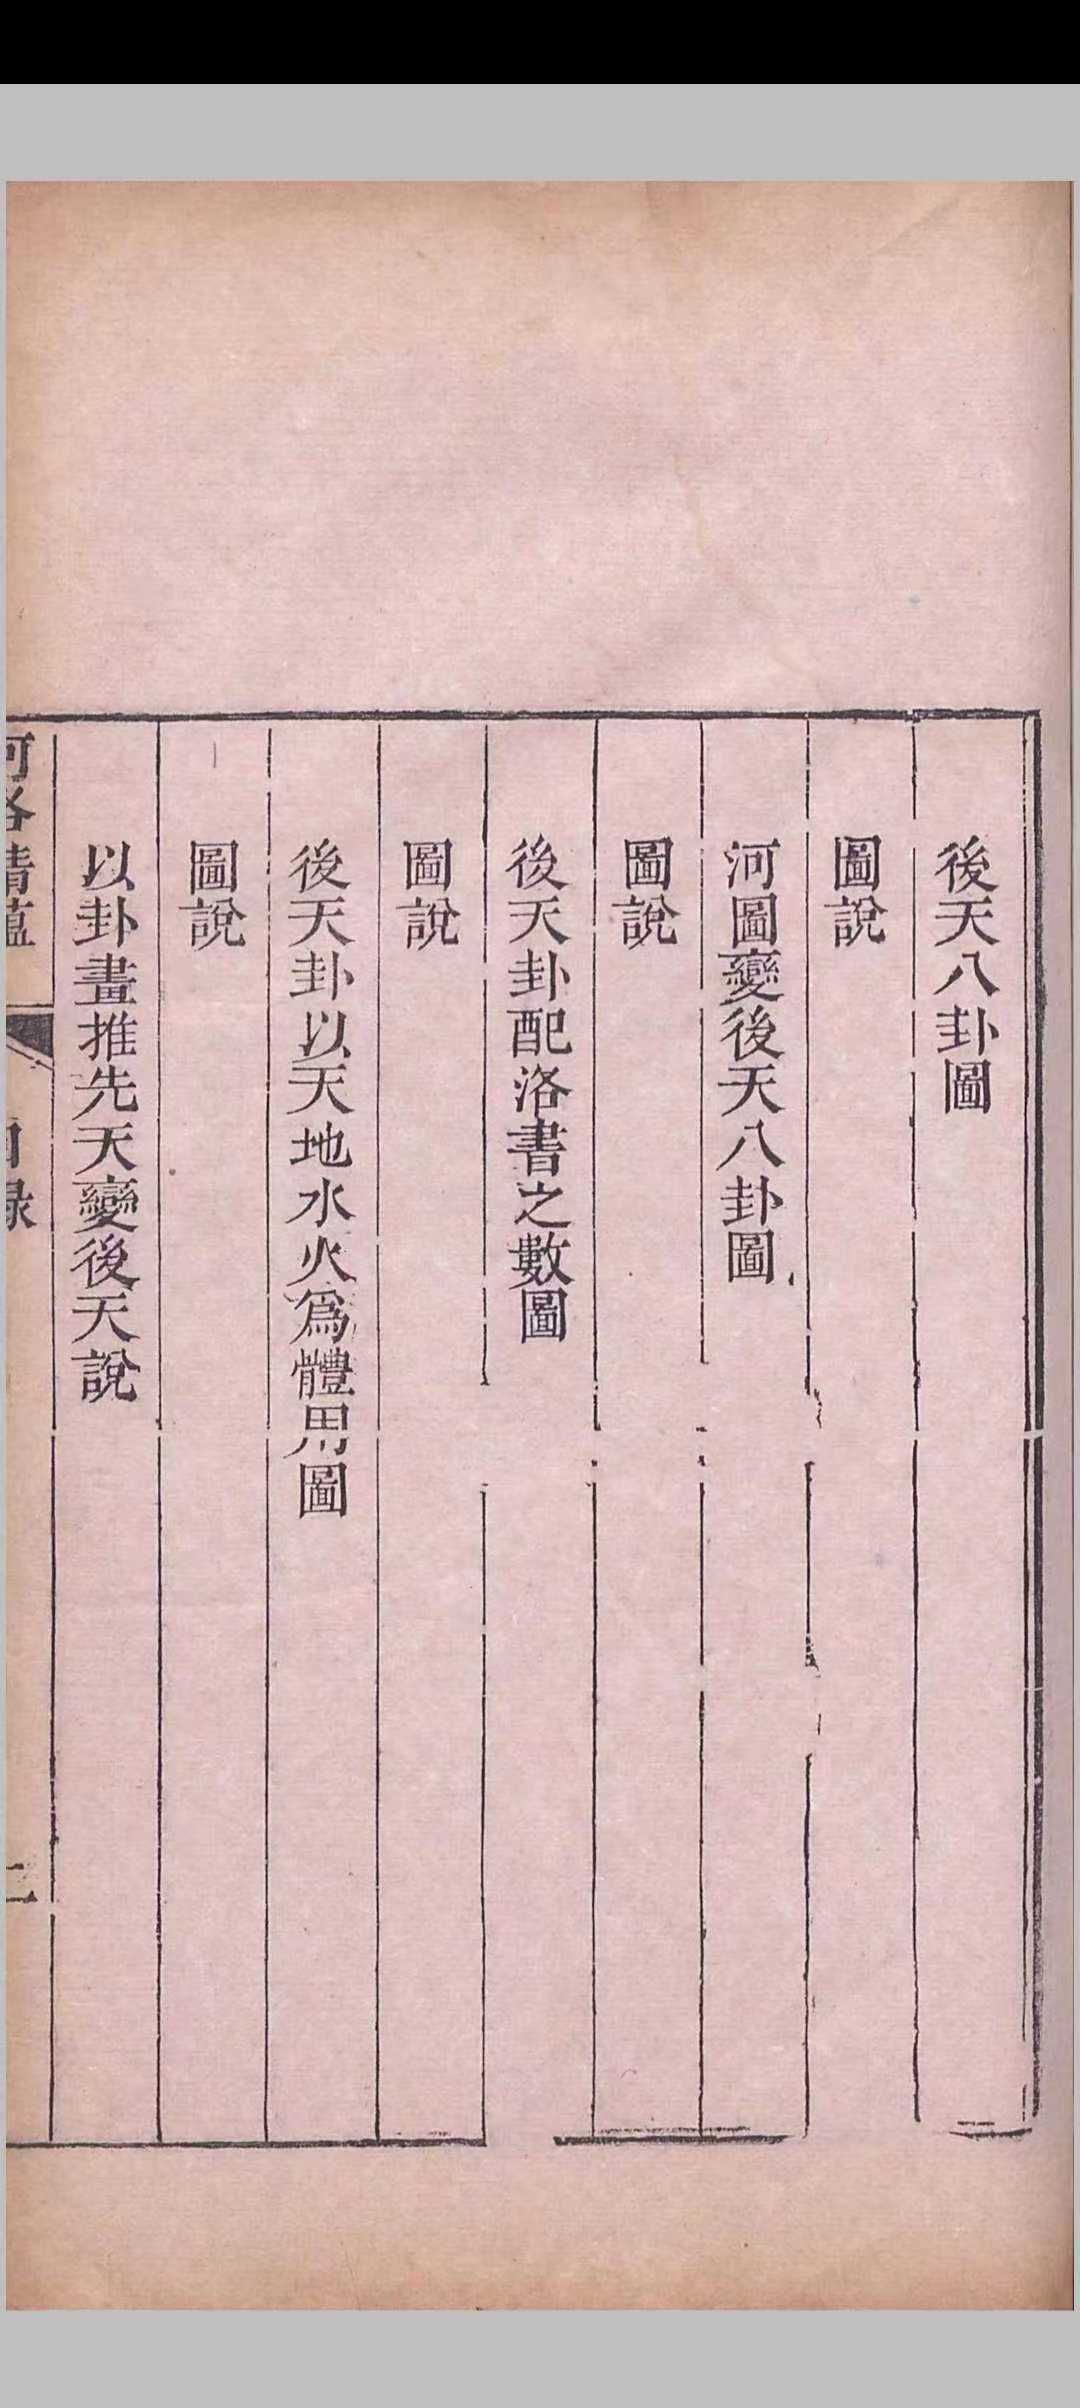 後天八卦圖
圖說
河圖變後天八卦圖
圖說
後天卦配洛書之數圖
圖說
後天卦以天地水火爲體用圖
圖說
以卦畫推先天變後天說
河洛精蘊
目錄
二